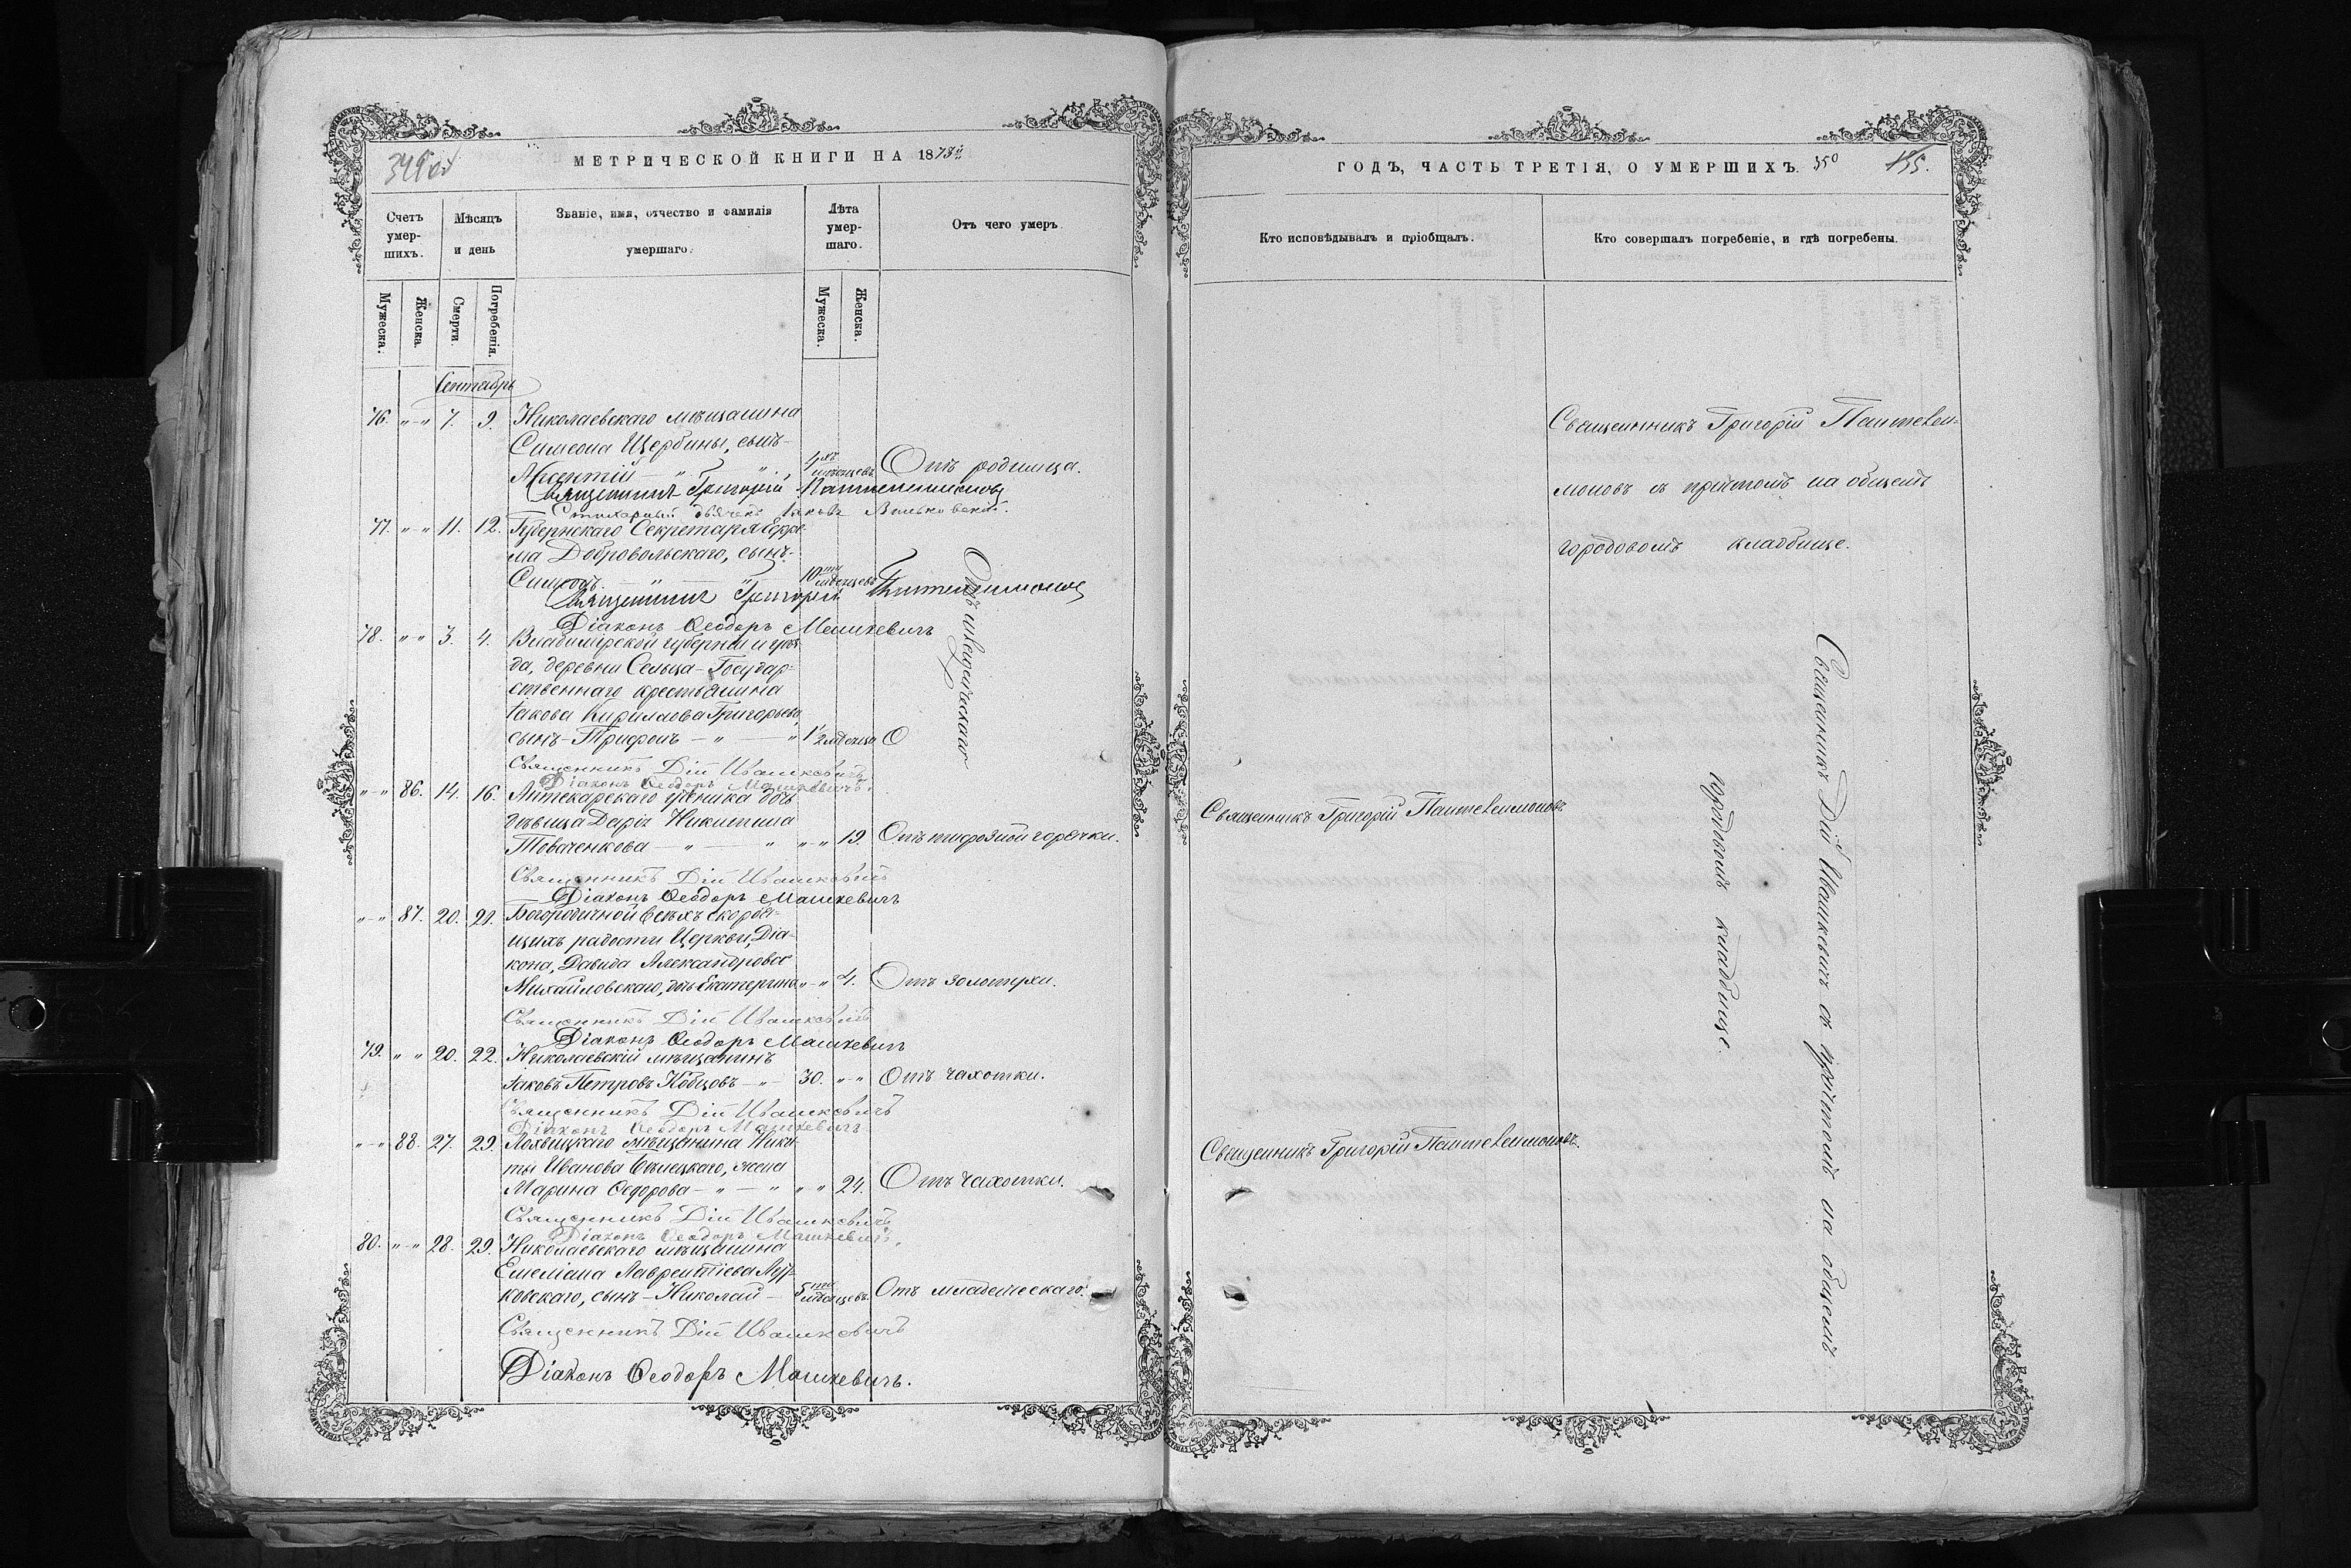 МЕТРИЧЕСКОЙ КНИГИ НА 1873й
Счетъ умер-шихъ.
Мѣсяцъ и день
Званіе, имя, отчество и фамилія умершаго.
Лѣта умер-шаго.
Отъ чего умеръ.
Мужеска.
Женска.
Смерти.
Погребенія.
Мужеска.
Женска.
Сентябрь
76. „-„ 7. 9. Николаевскаго мѣщанина
Симеона Щербины, сынъ-
„ „ 4хъ мѣсяцевъ Отъ родимца.
Священникъ Григорій Пантелеимоновъ
Стихарный дьячекъ Іаковъ
77. „ „ 11. 12. Губернскаго Секретаря Ефре-
ма Добровольскаго, сынъ-
Симеонъ. „ „ 10ти мѣсяцевъ
Отъ младенческаго
Священникъ Григорій Пантелеимоновъ
Діаконъ Ѳеодоръ Машкевичъ
78. „ „ 3. 4. Владимірской губерніи и уѣз-
да, деревни Сельца-Государ-
ственнаго крестьянина
Іакова Кирилова Григорьева
сынъ-Трифонъ - „ - „ 1½ мѣсяца О
Священникъ Дій Ивашкевичъ
Діаконъ Ѳеодоръ Машкевичъ.
„-„ 86. 14. 16. Аптекарскаго ученика дочь
дѣвица Дарія Никитина
Товаченкова - „ - „ „-„ 19. Отъ тифозной горячки.
Священникъ Дій Ивашкевичъ
Діаконъ Ѳеодоръ Машкевичъ
„-„ 87. 20. 21. Богородичной всѣхъ скорбя-
щихъ радости Церкви, Діа-
кона, Давида Александрова
Михайловскаго, дочь Екатерина „-„ 4. Отъ золотухи.
Священникъ Дій Ивашкевичъ
Діаконъ Ѳеодоръ Машкевичъ
79. „ „ 20. 22. Николаевскій мѣщанинъ
Іаковъ Петровъ Кобцовъ - „- 30. „-„ Отъ чахотки.
Священникъ Дій Ивашкевичъ
Діаконъ Ѳеодоръ Машкевичъ
„-„ 88. 27. 29. Лохвицкаго мѣщанина Ники-
ты Иванова жена
Марина Ѳедорова - „ - „ „ „ 24. Отъ чахотки.
Священникъ Дій Ивашкевичъ
Діаконъ Ѳеодоръ Машкевичъ.
80. „-„ 28. 29. Николаевскаго мѣщанина
Емеліана Лаврентіева
сынъ-Николай - 5ти мѣсяцевъ. Отъ младенческаго.
Священникъ Дій Ивашкевичъ
Діаконъ Ѳеодоръ Машкевичъ.
ГОДЪ, ЧАСТЬ ТРЕТІЯ, О УМЕРШИХЪ. 350 155.
Кто исповѣдывалъ и пріобщалъ.
Кто совершалъ погребеніе, и гдѣ погребены.
Священникъ Григорій Пантелеи-
моновъ съ причтомъ на общемъ
городовомъ кладбище.
Священникъ Григорій Пантелеимоновъ.
Священникъ Григорій Пантелеимоновъ.
Священникъ Дій Ивашкевичъ съ причтомъ на общемъ
городовомъ кладбище.